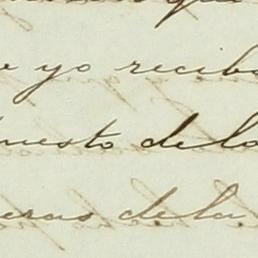 yo recibo
uesto de la
eras de la